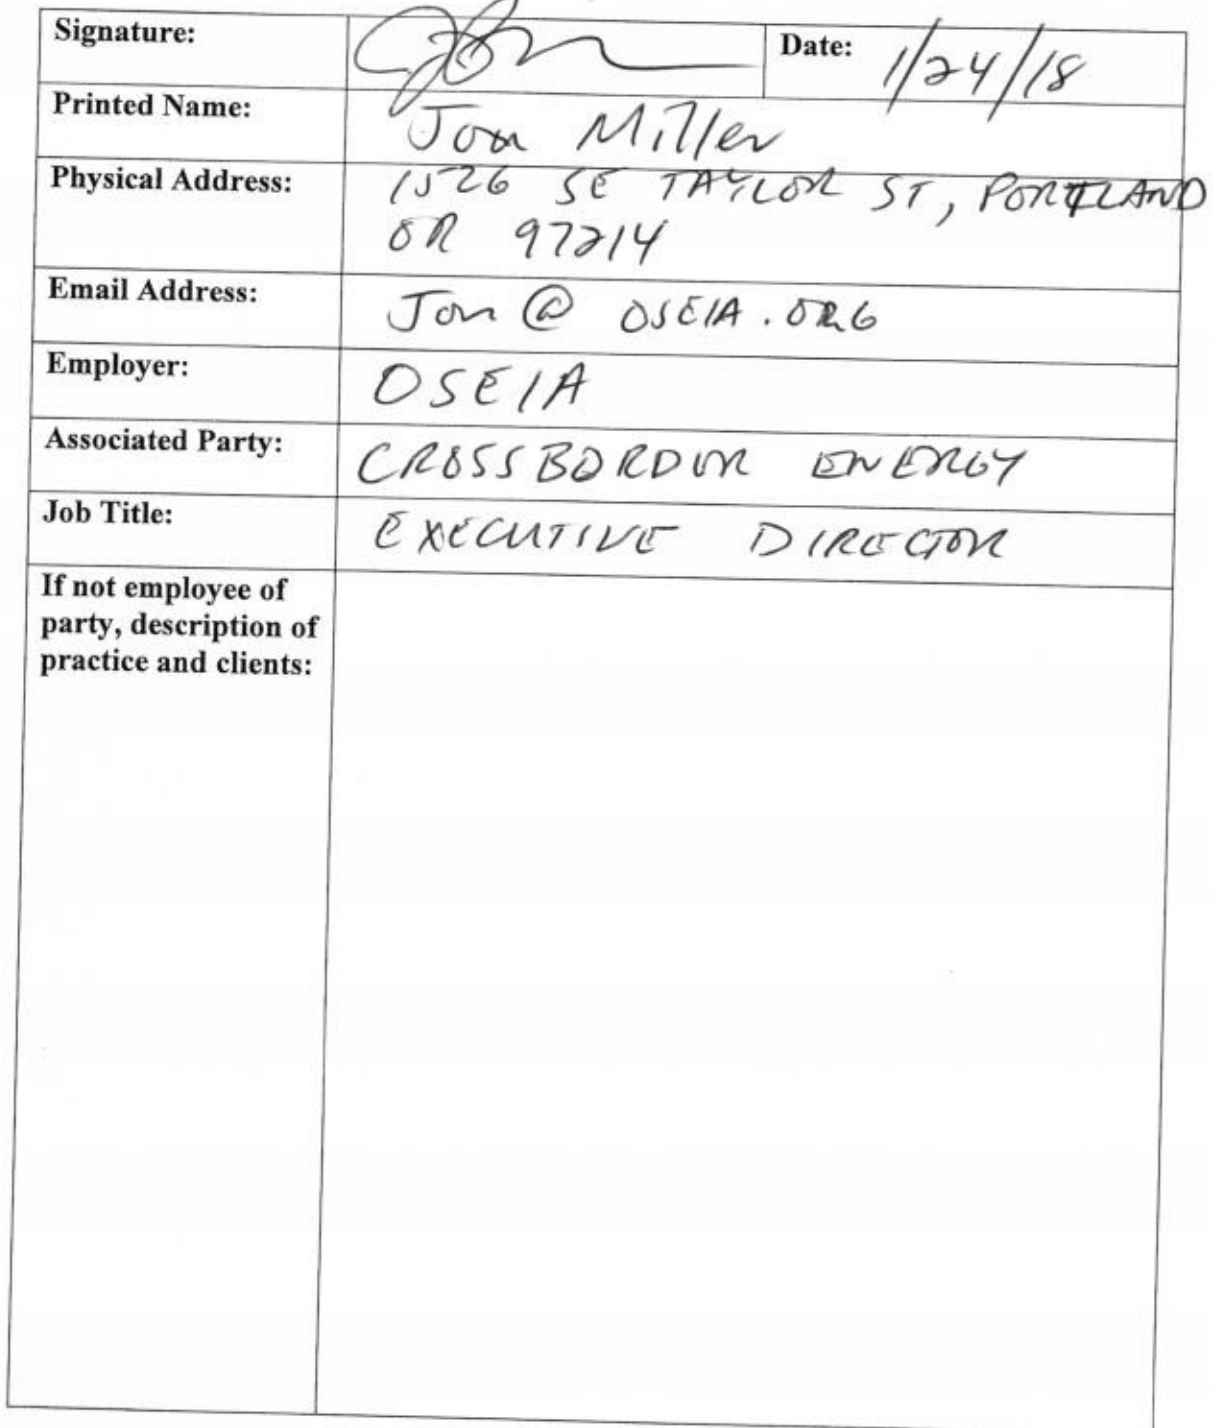 Signature: Date: 1/24/18
Printed Name: Jon Miller
Physical Address: 1526 SE TAYLOR ST, PORTLAND
OR 97214
Email Address: Jon@OSEIA.ORG
Employer: OSEIA
Associated Party: CROSSBORDER ENERGY
Job Title: EXECUTIVE DIRECTOR
If not employee of
party, description of
practice and clients: